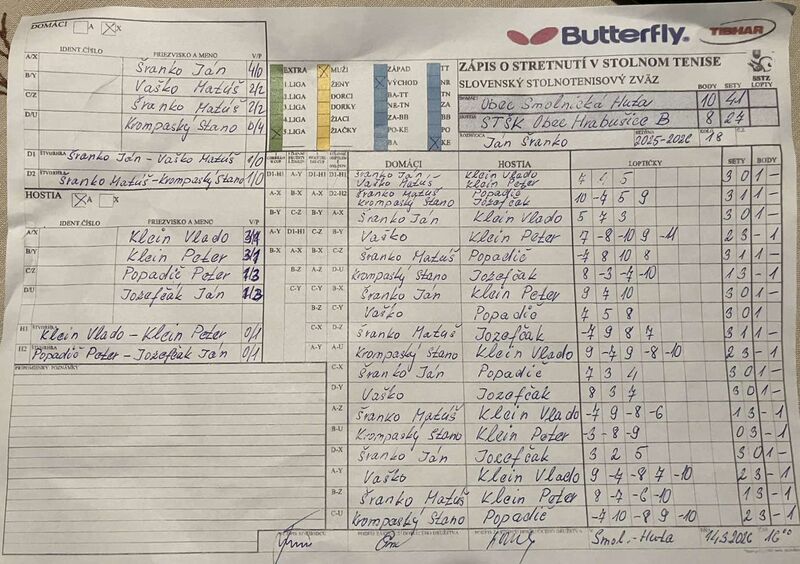 DOMÁCI A X
IDENT.ČÍSLO PRIEZVISKO A MENO V/P
A/X Šranko Ján 4/0
B/Y Vaško Matúš 2/2
C/Z Šranko Matúš 2/2
D/U Krompaský Stano 0/4
D1 ŠTVORHRA Šranko Ján - Vaško Matúš 1/0
D2 ŠTVORHRA Šranko Matúš - Krompaský Stano 1/0
HOSTIA A X
IDENT.ČÍSLO PRIEZVISKO A MENO V/P
A/X Klein Vlado 3/1
B/Y Klein Peter 3/1
C/Z Popadič Peter 1/3
D/U Jozefčák Ján 1/3
H1 ŠTVORHRA Klein Vlado - Klein Peter 0/1
H2 ŠTVORHRA Popadič Peter - Jozefčák Ján 0/1
PRIPOMIENKY POZNÁMKY
Butterfly TIBHAR
ZÁPIS O STRETNUTÍ V STOLNOM TENISE
SLOVENSKÝ STOLNOTENISOVÝ ZVÄZ
SSTZ
BODY SETY LOPTY
DOMÁCI Obec Smolnícka Huta 10 41
HOSTIA STŠK Obec Hrabušice B 8 27
ROZHODCA Ján Šranko SEZÓNA 2025-2026 KOLO 18
EXTRA MUŽI ZÁPAD TT
1.LIGA ŽENY VÝCHOD NR
2.LIGA DORCI BA-TT ZA
3.LIGA DORKY NR-TN BB
4.LIGA ŽIACI ZA-BB PO
5.LIGA ŽIAČKY PO-KE KE
BA
DOMÁCI HOSTIA LOPTIČKY SETY BODY
D1-H1 Šranko Ján Vaško Matúš Klein Vlado Klein Peter 7 6 5 3 0 1 -
D2-H2 Šranko Matúš Krompaský Stano Popadič Jozefčák 10 -7 5 9 3 1 1 -
A-X Šranko Ján Klein Vlado 5 7 3 3 0 1 -
B-Y Vaško Klein Peter 7 -8 -10 9 -11 2 3 - 1
C-Z Šranko Matúš Popadič -7 8 10 8 3 1 1 -
D-U Krompaský Stano Jozefčák 8 -3 -7 -10 1 3 - 1
B-X Šranko Ján Klein Peter 9 7 10 3 0 1 -
C-Y Vaško Popadič 7 5 8 3 0 1 -
D-Z Šranko Matúš Jozefčák -7 9 8 7 3 1 1 -
A-U Krompaský Stano Klein Vlado 9 -7 9 -8 -10 2 3 - 1
C-X Šranko Ján Popadič 7 3 4 3 0 1 -
D-Y Vaško Jozefčák 8 3 7 3 0 1 -
A-Z Šranko Matúš Klein Vlado -7 9 -8 -6 1 3 - 1
B-U Krompaský Stano Klein Peter -3 -8 -9 0 3 - 1
D-X Šranko Ján Jozefčák 3 2 5 3 0 1 -
A-Y Vaško Klein Vlado 9 -7 -8 7 -10 2 3 - 1
B-Z Šranko Matúš Klein Peter 8 -7 -6 -10 1 3 - 1
C-U Krompaský Stano Popadič -7 10 -8 9 -10 2 3 - 1
Smol.-Huta 14.3.2026 16⁰⁰